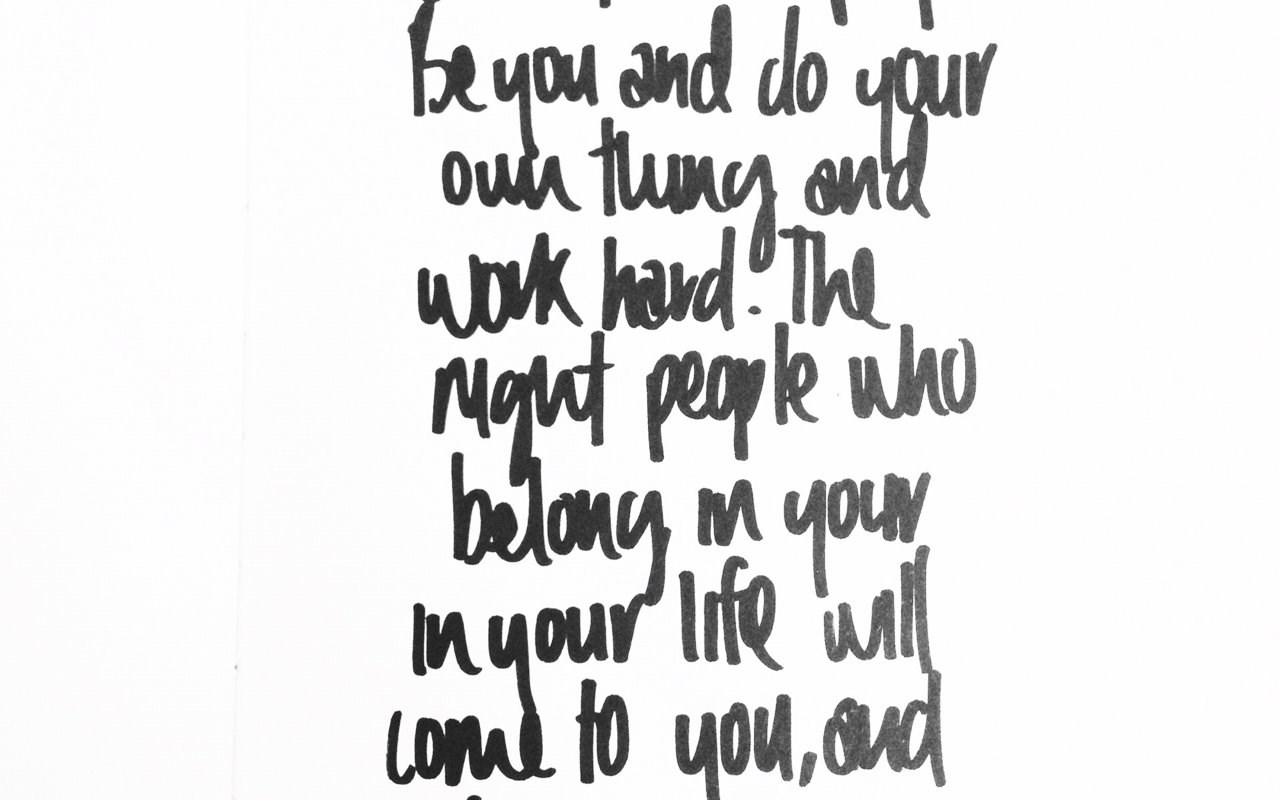 be you and do your
own thing and
work hard. The
right people who
belong in your
in your life will
come to you, and